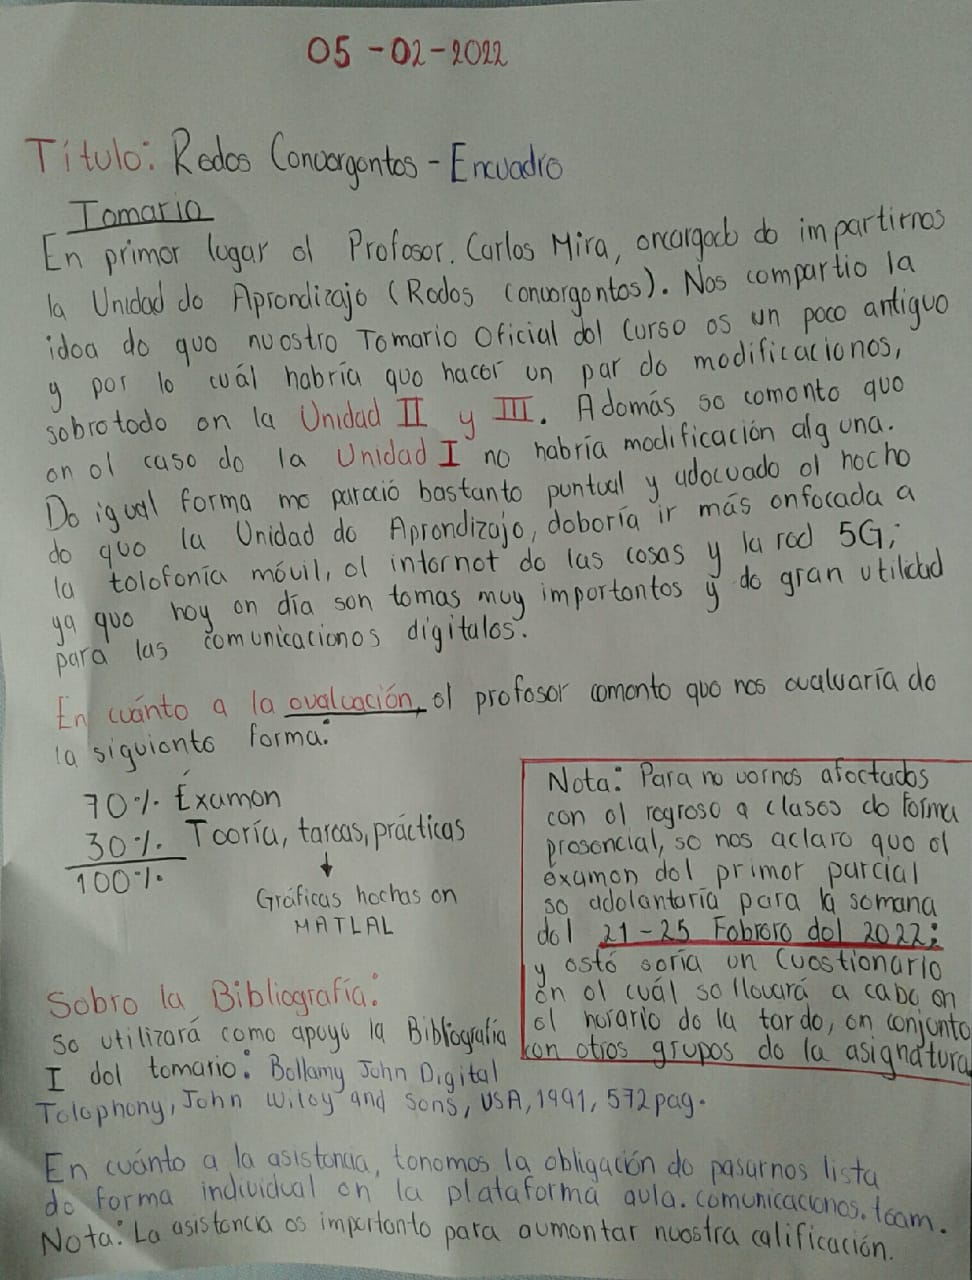 05-02-2022
Título: Redes Convergentes - Encuadre
Temario
En primer lugar el Profesor. Carlos Mira, encargado de impartirnos
la Unidad de Aprendizaje (Redes Convergentes). Nos compartio la
idea de que nuestro Temario Oficial del Curso es un poco antiguo
y por lo cuál habría que hacer un par de modificaciones,
sobretodo en la Unidad II y III. Además se comento que
en el caso de la Unidad I no habría modificación alguna.
De igual forma me pareció bastante puntual y adecuado el hecho
de que la Unidad de Aprendizaje, debería ir más enfocada a
la telefonía móvil, el internet de las cosas y la red 5G;
ya que hoy en día son temas muy importentes y de gran utilidad
para las comunicaciones digitales.
En cuánto a la evaluación, el profesor comento que nos evaluaría de
la siguiente forma:
70% Éxamen
30% Teoría, tareas, prácticas
100%
Gráficas hechas en
MATLAL
Nota: Para no vernos afectados
con el regreso a clases de forma
presencial, se nos aclaro que el
éxamen del primer parcial
se adelantaría para la semana
del 21-25 Febrero del 2022;
y esté sería un Cuestionario
en el cuál se llevará a cabo en
el horario de la tarde, en conjunto
con otros grupos de la asignatura
Sobre la Bibliografía:
Se utilizará como apoyo la Bibliografía
I del temario: Bellamy John Digital
Telephony, John Wiley and Sons, USA, 1991, 572 pag.
En cuánto a la asistencia, tenemos la obligación de pasarnos lista
de forma individual en la plataforma aula.comunicaciones.team.
Nota: La asistencia es importante para aumentar nuestra calificación.